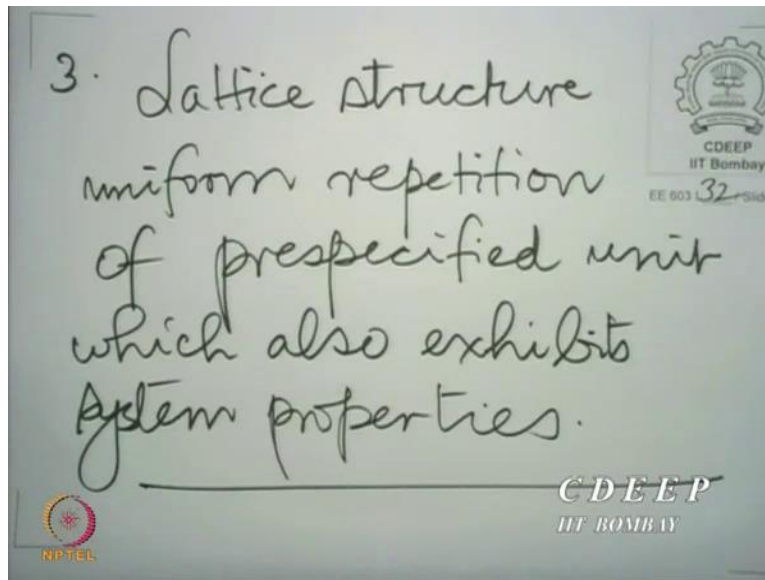 3. Lattice structure
uniform repetition
of prespecified unit
which also exhibits
system properties.
CDEEP
IIT Bombay
EE 603 L 32 / Slid
CDEEP
IIT BOMBAY
NPTEL